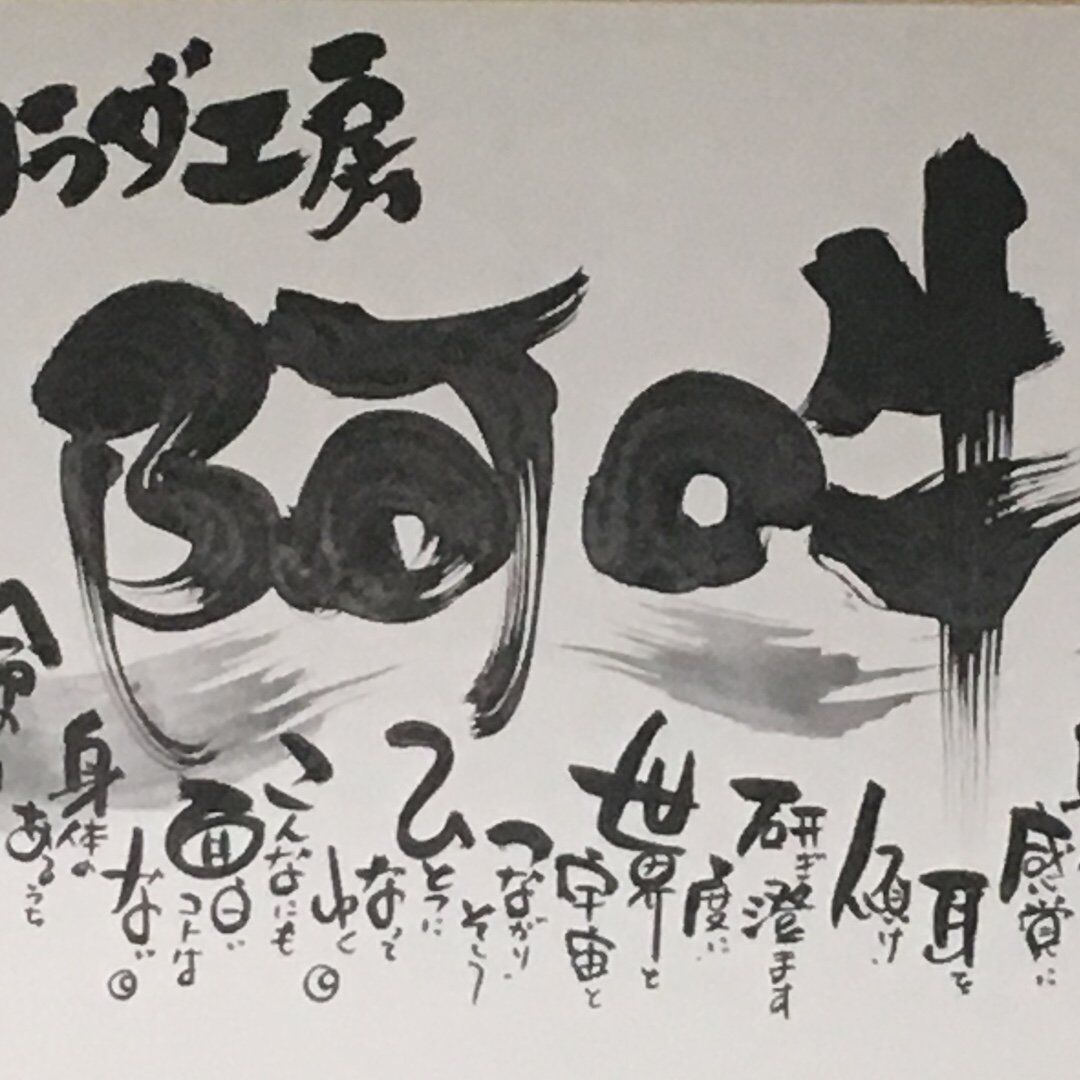 カラダ工房
阿吽
感覚に
耳を
傾け
研ぎ澄ます
度に
世界と
宇宙と
つながり
そして
ひとつに
なって
ゆく。
こんなにも
面白い
コトは
ない。
身体の
あるうち